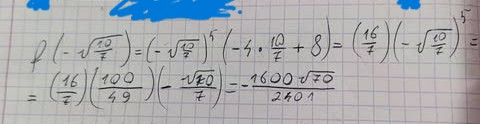 f(-√(10/7)) = (-√(10/7))^5 (-4·10/7 + 8) = (16/7)(-√(10/7))^5 =
= (16/7)(100/49)(-√70/7) = -1600√70/2401